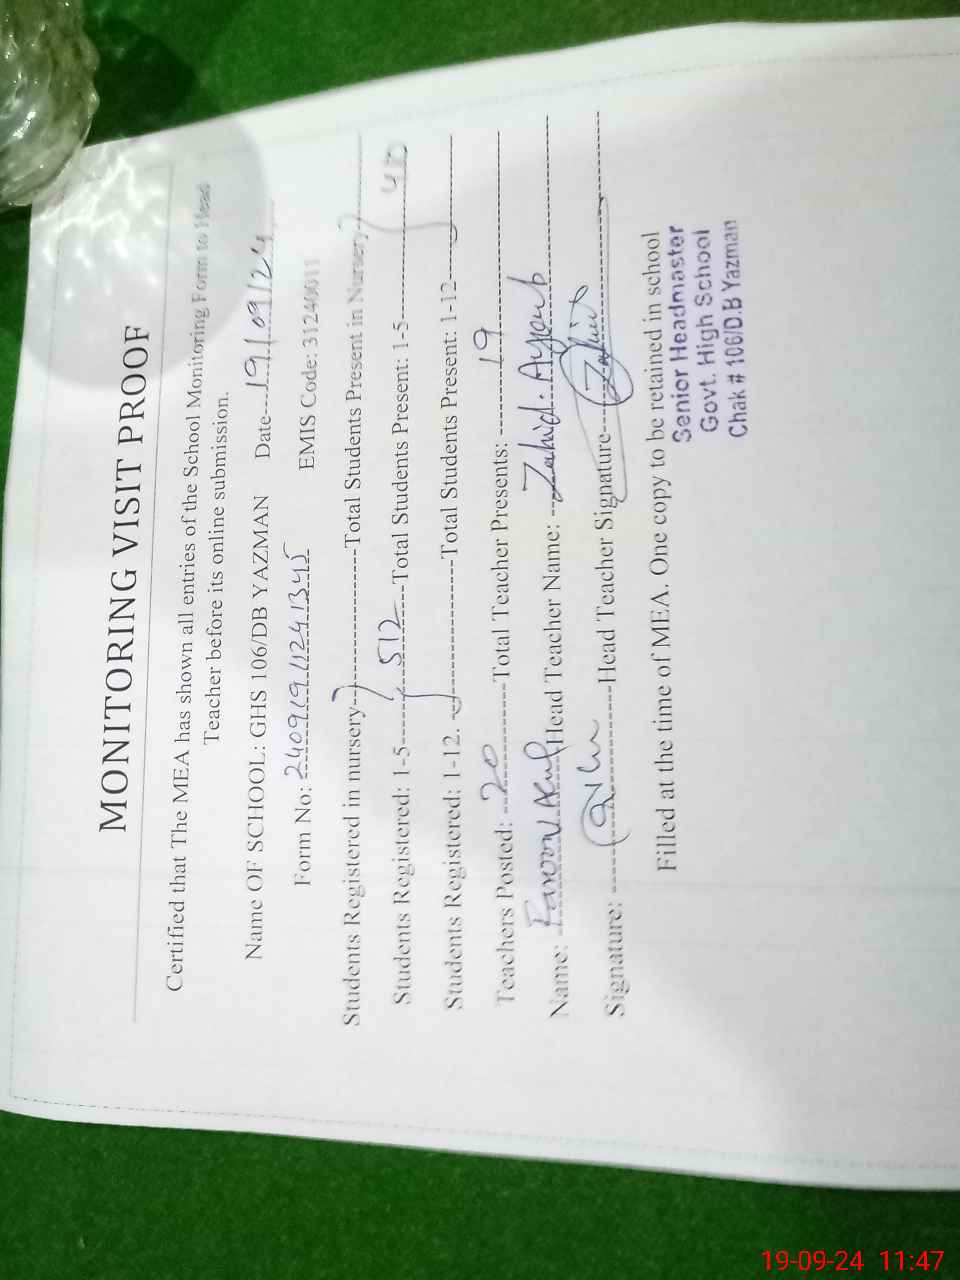 MONITORING VISIT PROOF
Certified that The MEA has shown all entries of the School Monitoring Form to Head
Teacher before its online submission.
Name OF SCHOOL: GHS 106/DB YAZMAN Date---19/09/24
Form No: 24091911241345 EMIS Code: 31240011
Students Registered in nursery-------------Total Students Present in Nursery
Students Registered: 1-5------512---Total Students Present: 1-5
Students Registered: 1-12.-------------Total Students Present: 1-12
Teachers Posted: --20----------Total Teacher Presents: ---------19
Name: Head Teacher Name: --Zahid. Ayoub
Signature: ----------------Head Teacher Signature------Zahid
Filled at the time of MEA. One copy to be retained in school
Senior Headmaster
Govt. High School
Chak # 106/D.B Yazman
19-09-24 11:47